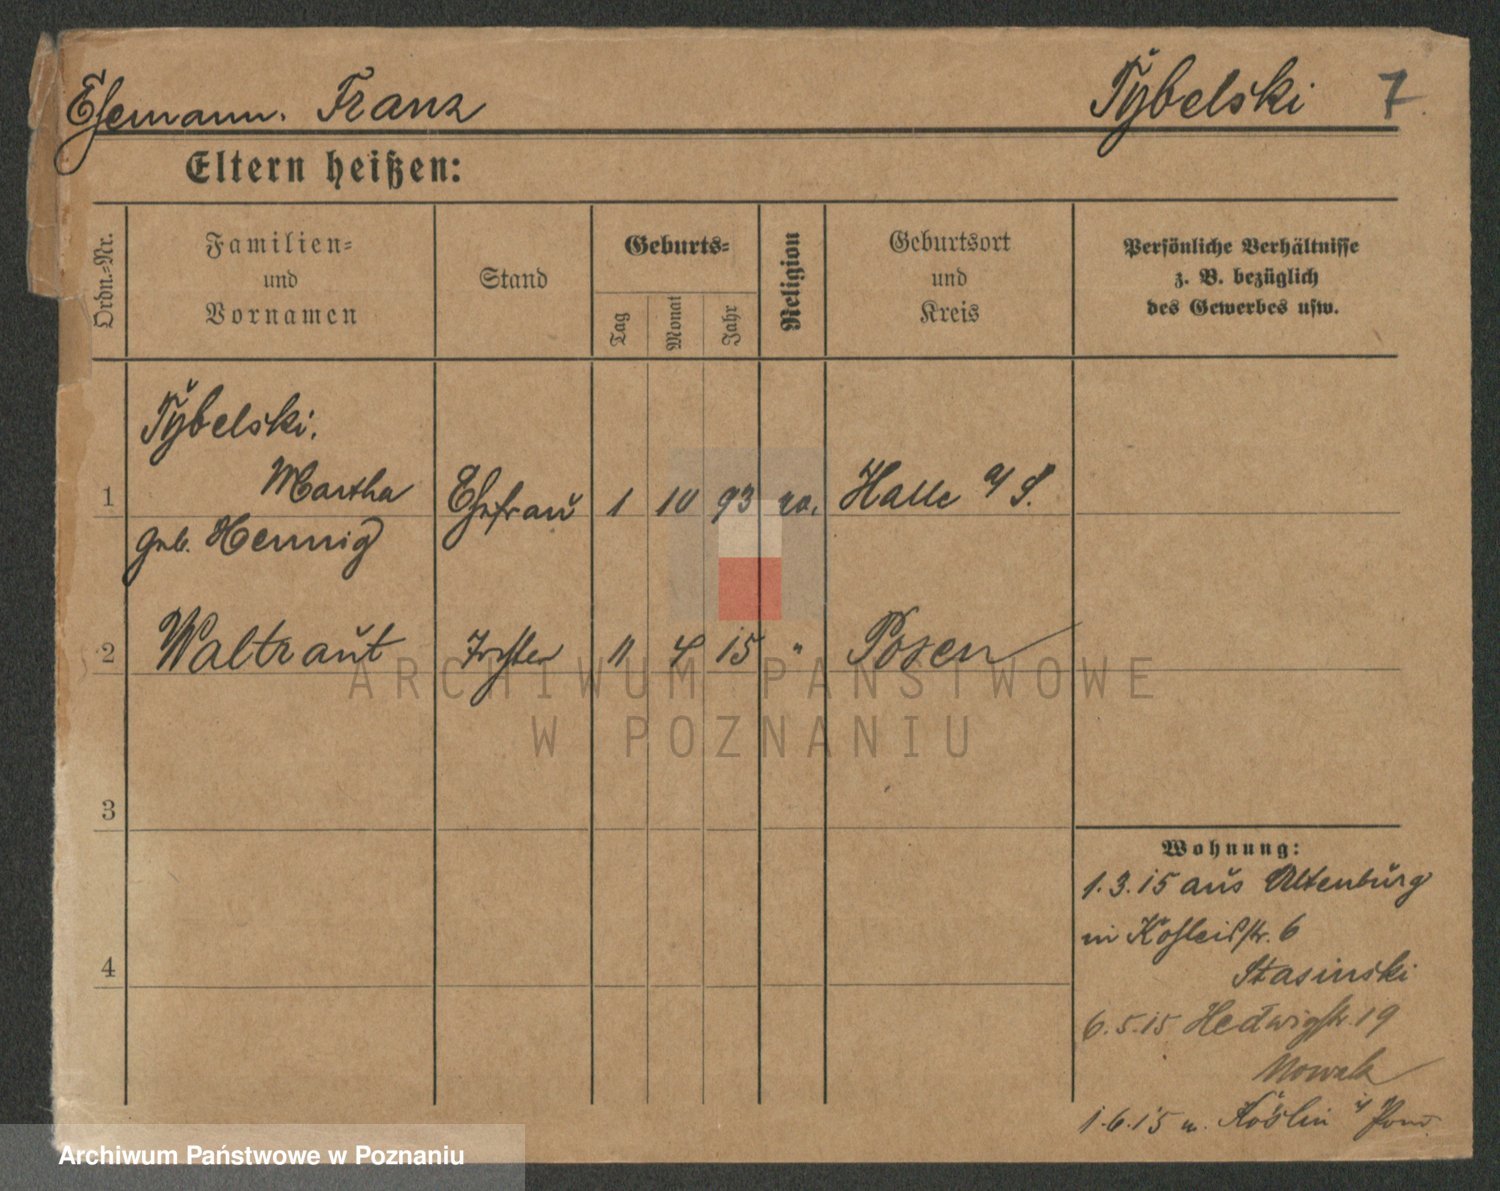 Ehemann. Franz
Tybelski 7
Eltern heißen:
Ordn.=Nr.
Familien=
und
Vornamen
Stand
Geburts=
Tag
Monat
Jahr
Religion
Geburtsort
und
Kreis
Persönliche Verhältnisse
z. B. bezüglich
des Gewerbes usw.
Tybelski.
1 Martha Ehefrau 1 10 93 Halle a/S.
geb. Hennig
2 Waltraut Tochter 11 4 15 " Posen
3
4
Wohnung:
1.3.15 aus Altenburg
in 6
Stasinski
6.5.15 Hedwigstr. 19
Nowak
1.6.15 n. Köslin i/ Pom.
ARCHIWUM PAŃSTWOWE
W POZNANIU
Archiwum Państwowe w Poznaniu